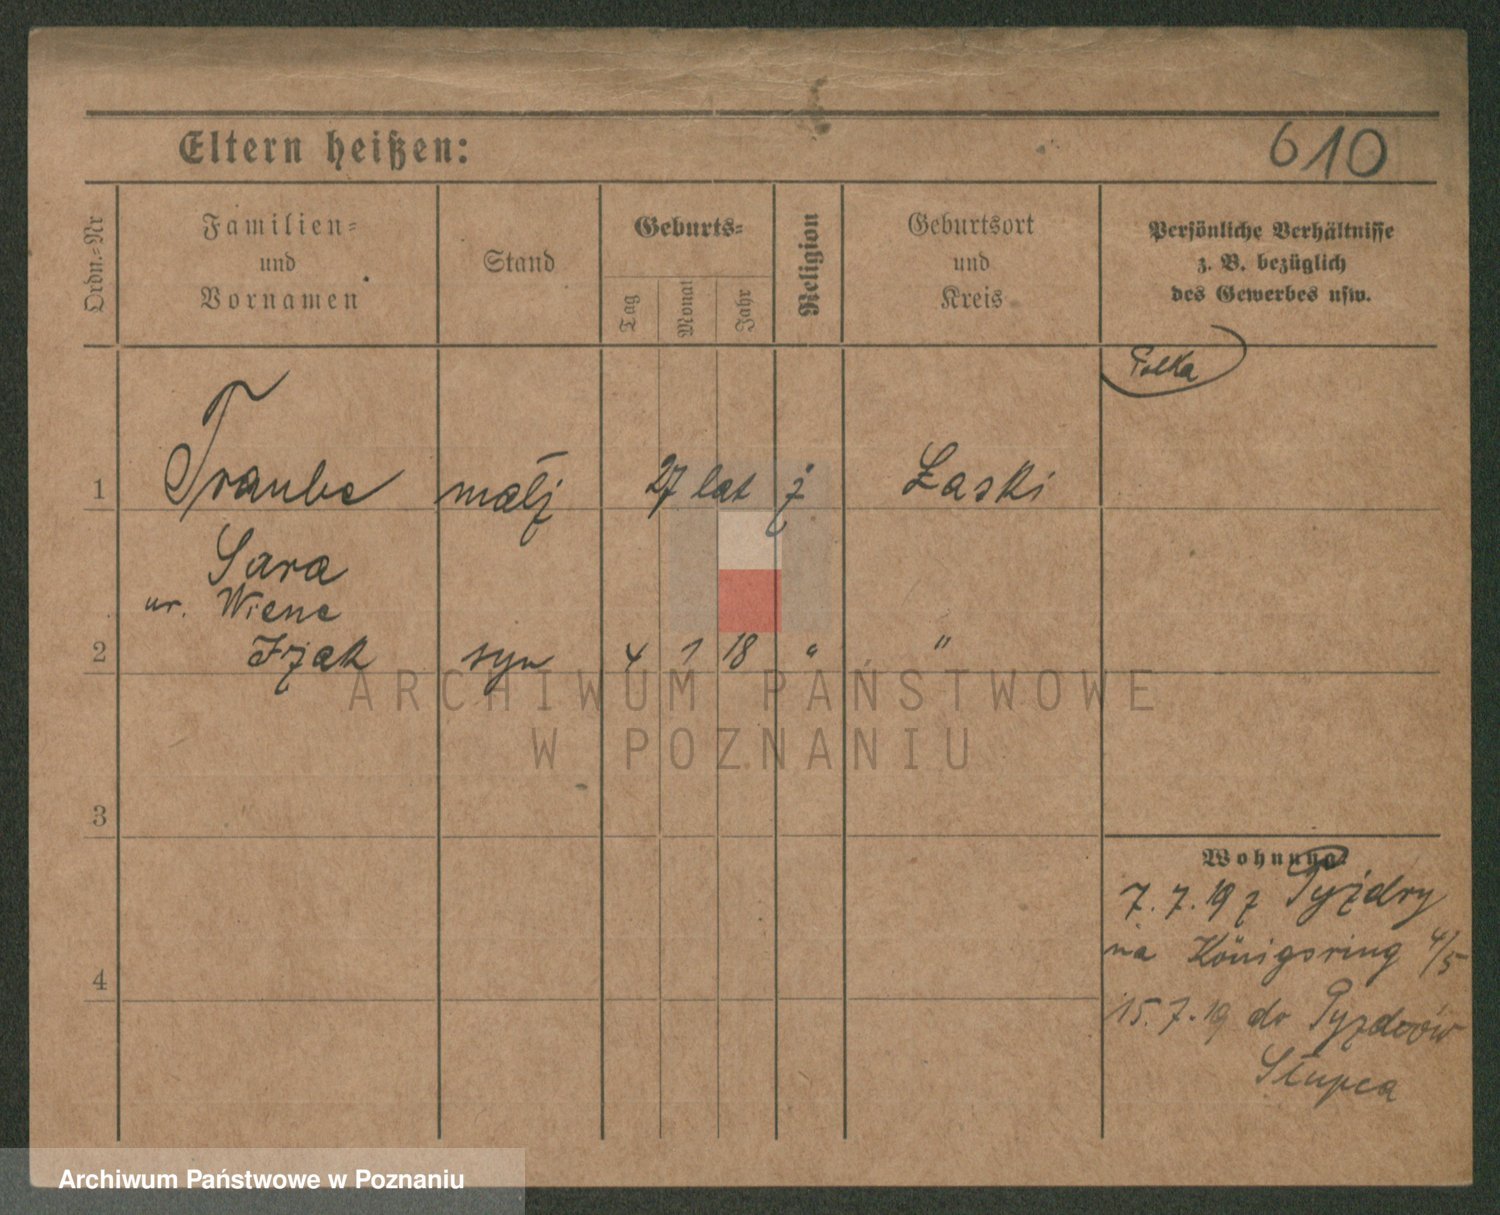 Eltern heißen:
610
Ordn.-Nr
Familien-
und
Vornamen
Stand
Geburts-
Tag
Monat
Jahr
Religion
Geburtsort
und
Kreis
Persönliche Verhältnisse
z. B. bezüglich
des Gewerbes usw.
Polka
1 Traube małż 27 lat ż Łaski
Sara
ur. Wiene
2 Izak syn 4 1 18 " "
ARCHIWUM PAŃSTWOWE
W POZNANIU
3
Wohnung:
7.7.19 z Pyzdry
na Königsring 4/5
4
15.7.19 do Pyzdrów
Słupca
Archiwum Państwowe w Poznaniu